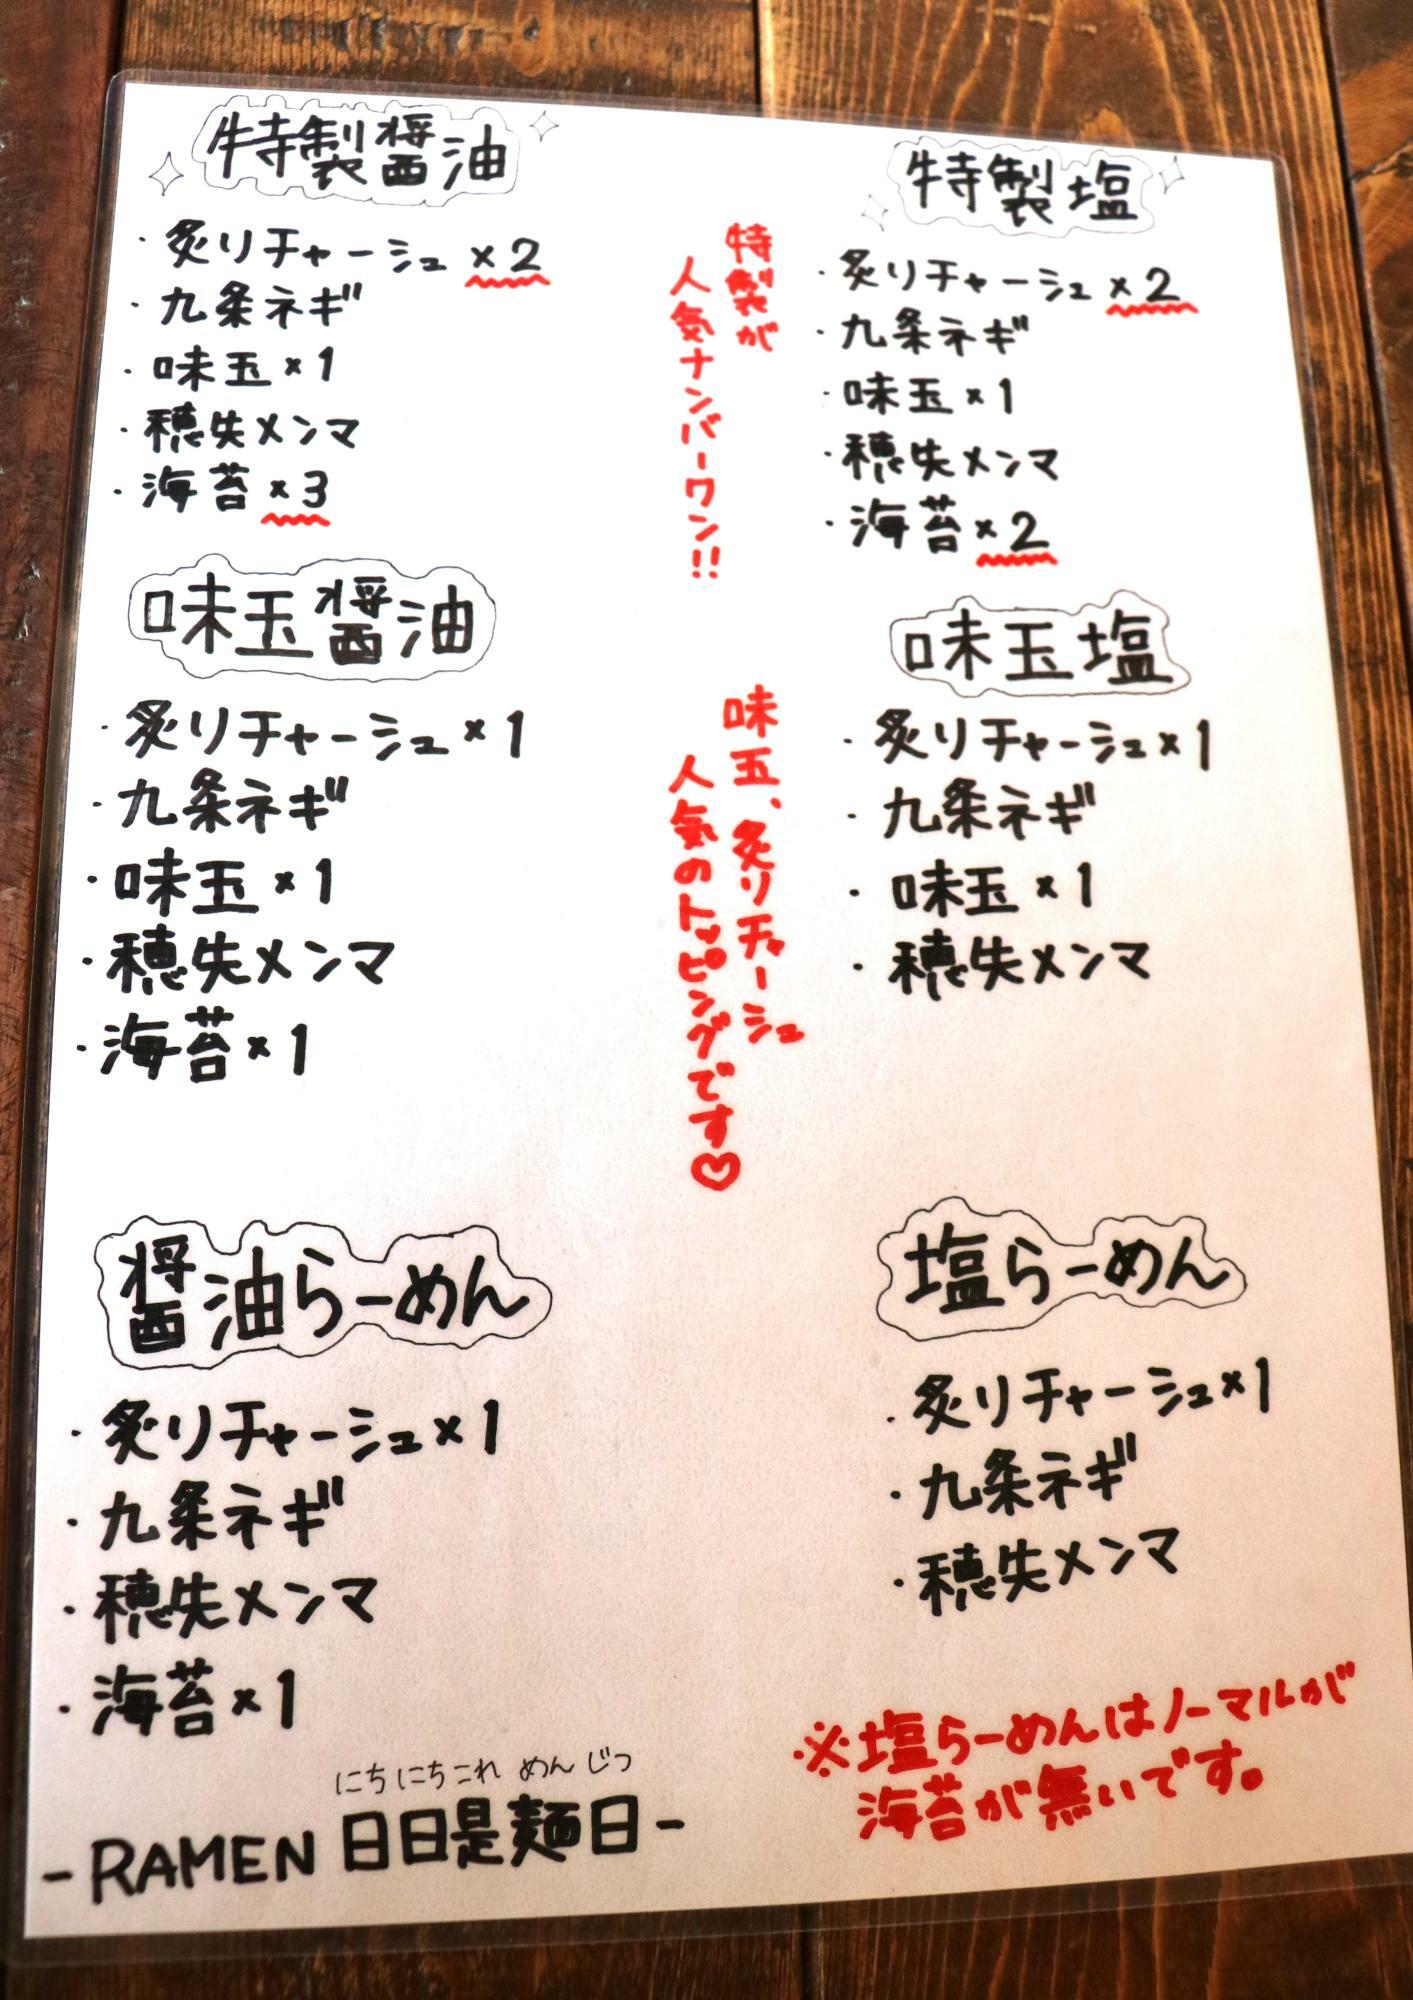 特製醤油
・炙りチャーシュ×2
・九条ネギ
・味玉×1
・穂先メンマ
・海苔×3
特製塩
・炙りチャーシュ×2
・九条ネギ
・味玉×1
・穂先メンマ
・海苔×2
特製が
人気ナンバーワン!!
味玉醤油
・炙りチャーシュ×1
・九条ネギ
・味玉×1
・穂先メンマ
・海苔×1
味玉塩
・炙りチャーシュ×1
・九条ネギ
・味玉×1
・穂先メンマ
味玉、炙りチャーシュ
人気のトッピングです♡
醤油らーめん
・炙りチャーシュ×1
・九条ネギ
・穂先メンマ
・海苔×1
塩らーめん
・炙りチャーシュ×1
・九条ネギ
・穂先メンマ
※塩らーめんはノーマルが
海苔が無いです。
にちにちこれ めん じつ
-RAMEN 日日是麺日-